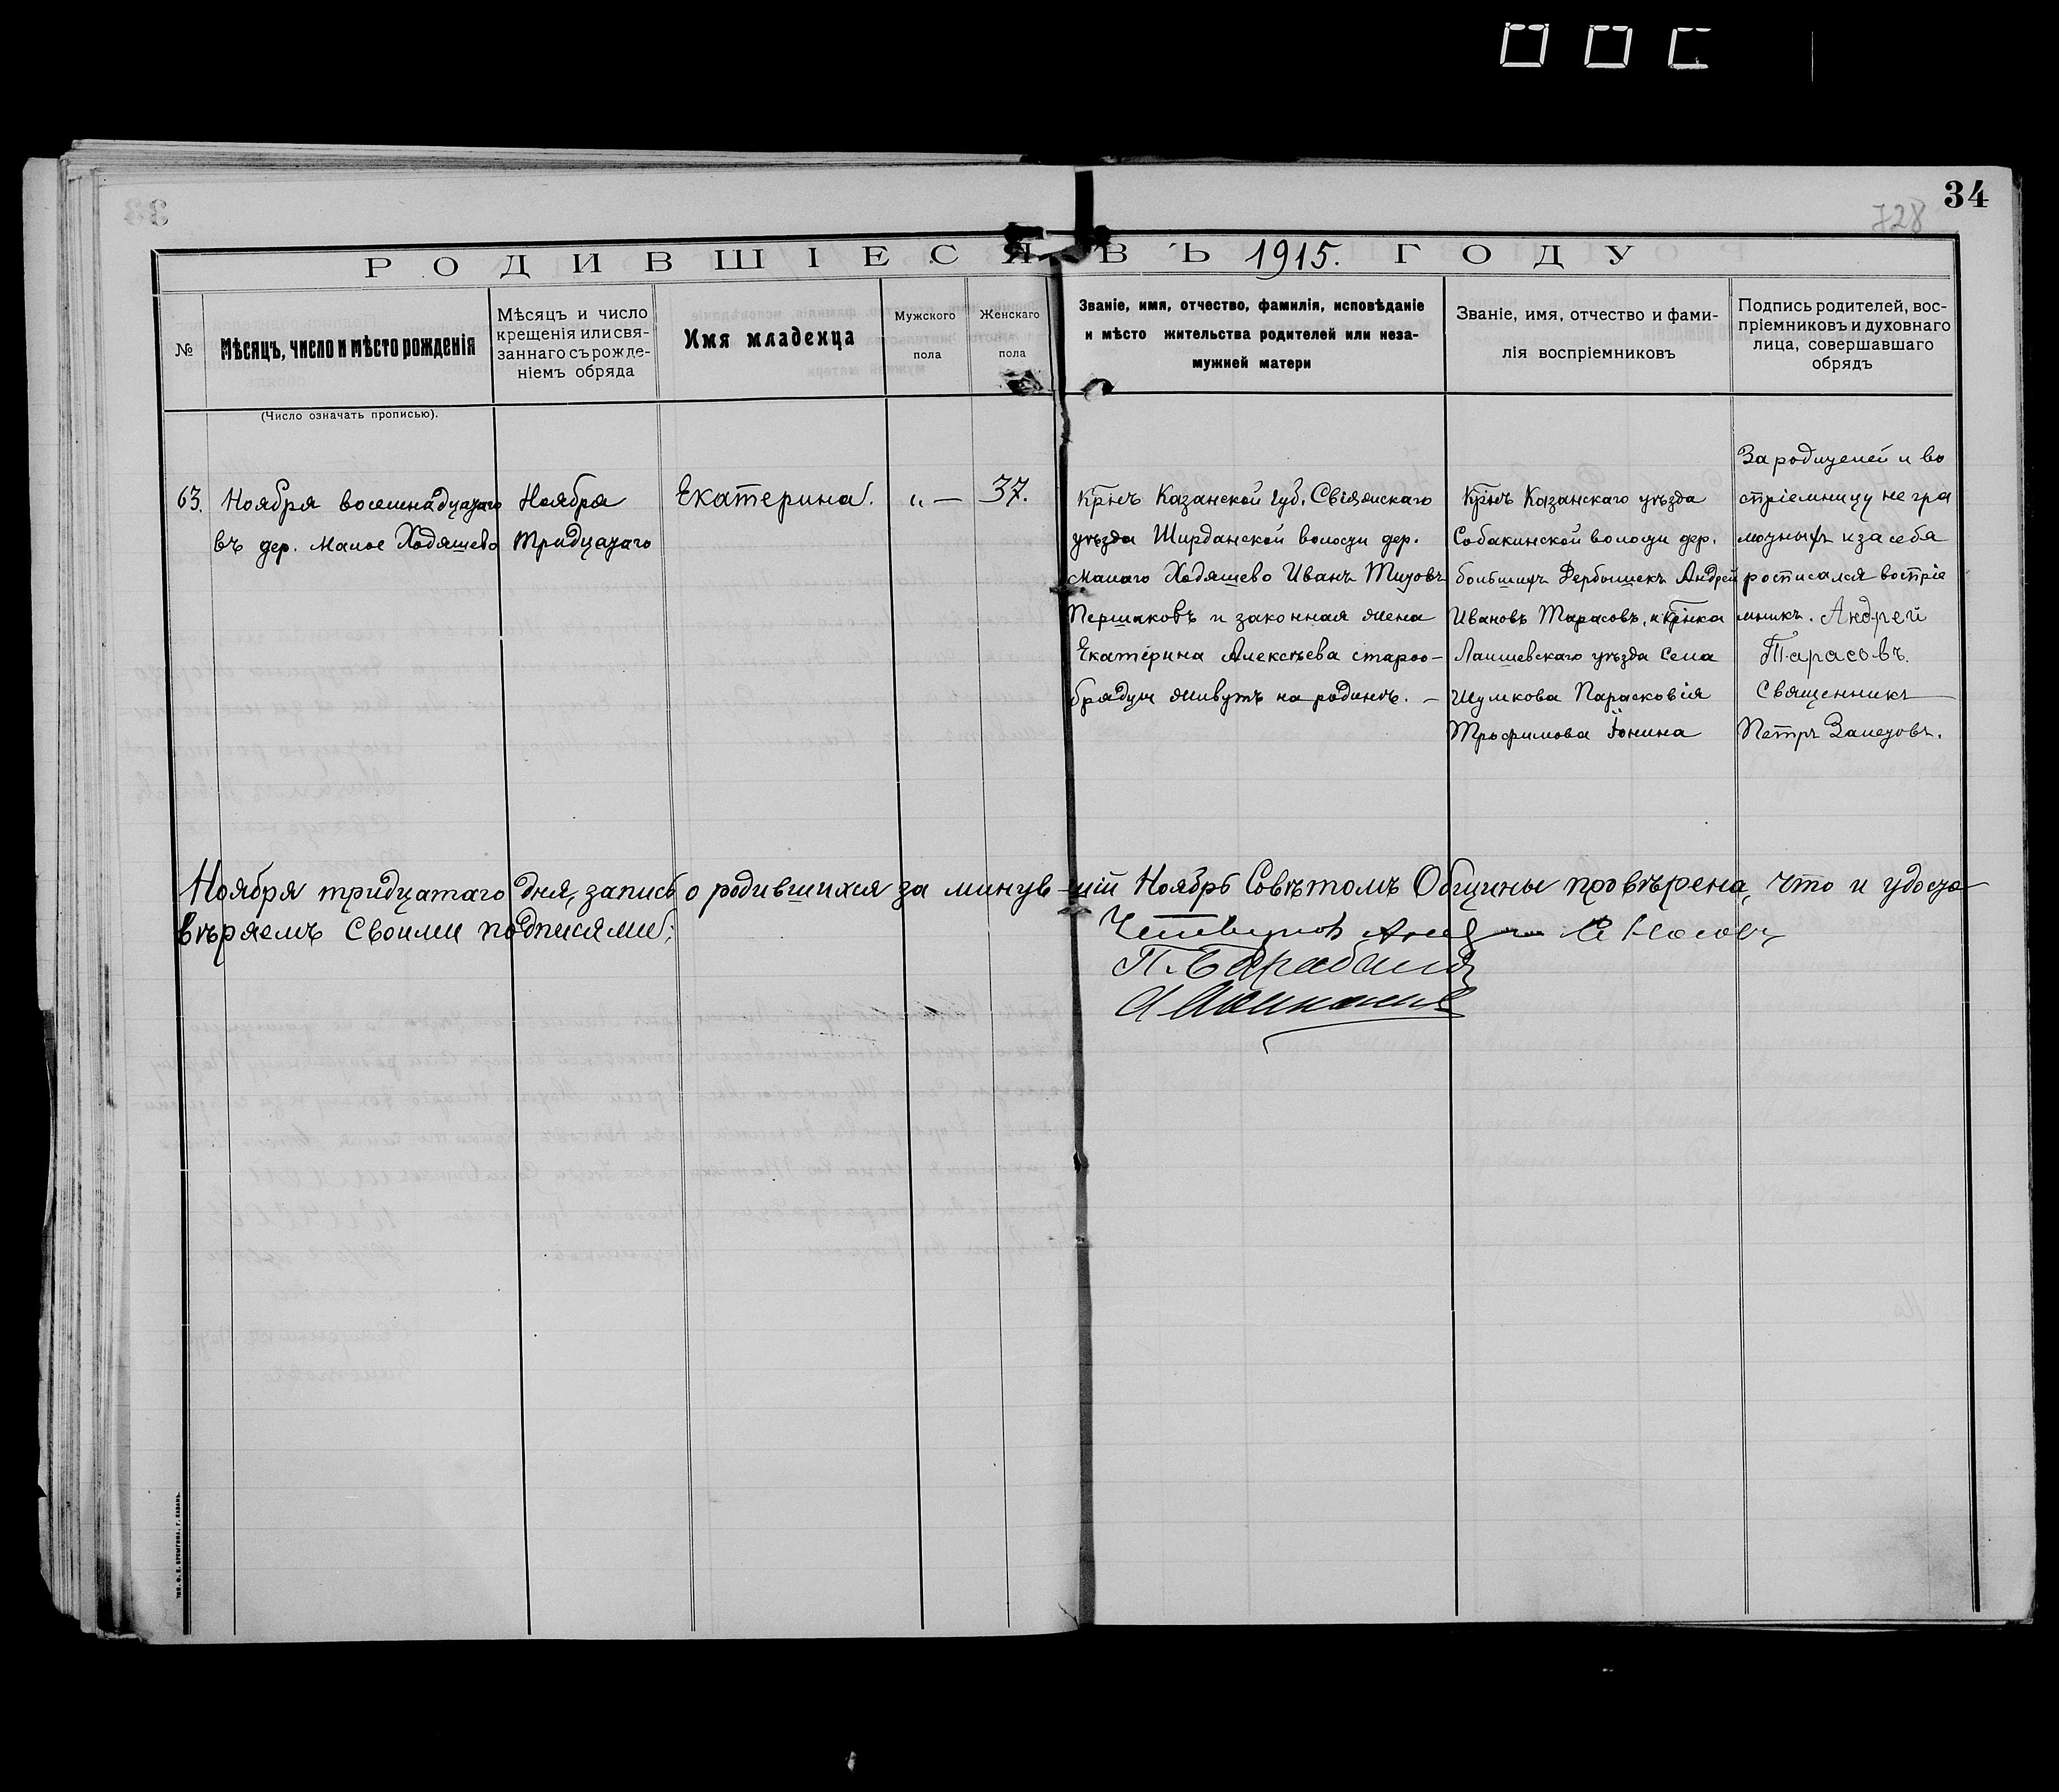 34
728
РОДИВШІЕСЯ ВЪ 1915. ГОДУ
№
Мѣсяцъ, число и мѣсто рожденія
Мѣсяцъ и число
крещенія или свя-
заннаго съ рожде-
ніемъ обряда
Имя младенца
Мужского
пола
Женскаго
пола
Званіе, имя, отчество, фамилія, исповѣданіе
и мѣсто жительства родителей или неза-
мужней матери
Званіе, имя, отчество и фами-
лія воспріемниковъ
Подпись родителей, вос-
пріемниковъ и духовнаго
лица, совершавшаго
обрядъ
(Число означать прописью).
63.
Ноября восемнадцатаго
въ дер. Малое Ходяшево
Ноября
Тридцатаго
Екатерина.
„ —
37.
Крнъ Казанской губ. Свіяжскаго
уѣзда Ширданской волости дер.
Малаго Ходяшево Иванъ Титовъ
Першаковъ и законная жена
Екатерина Алексѣева староо-
брядцы живутъ на родинѣ. —
Крнъ Казанскаго уѣзда
Собакинской волости дер.
большихъ Дербышекъ Андрей
Ивановъ Тарасовъ, и крнка
Лаишевскаго уѣзда Села
Шумкова Парасковія
Трофимова Іонина
За родителей и во
спріемницу не гра
мотныхъ и за себя
росписался воспріе
мникъ. Андрей
Тарасовъ.
Священникъ
Петръ Залетовъ.
Ноября тридцатаго дня, запись о родившихся за минув-шій Ноябрь Совѣтомъ Общины провѣрена, что и удосто-
вѣряемъ своими подписями:
П. Барабанов